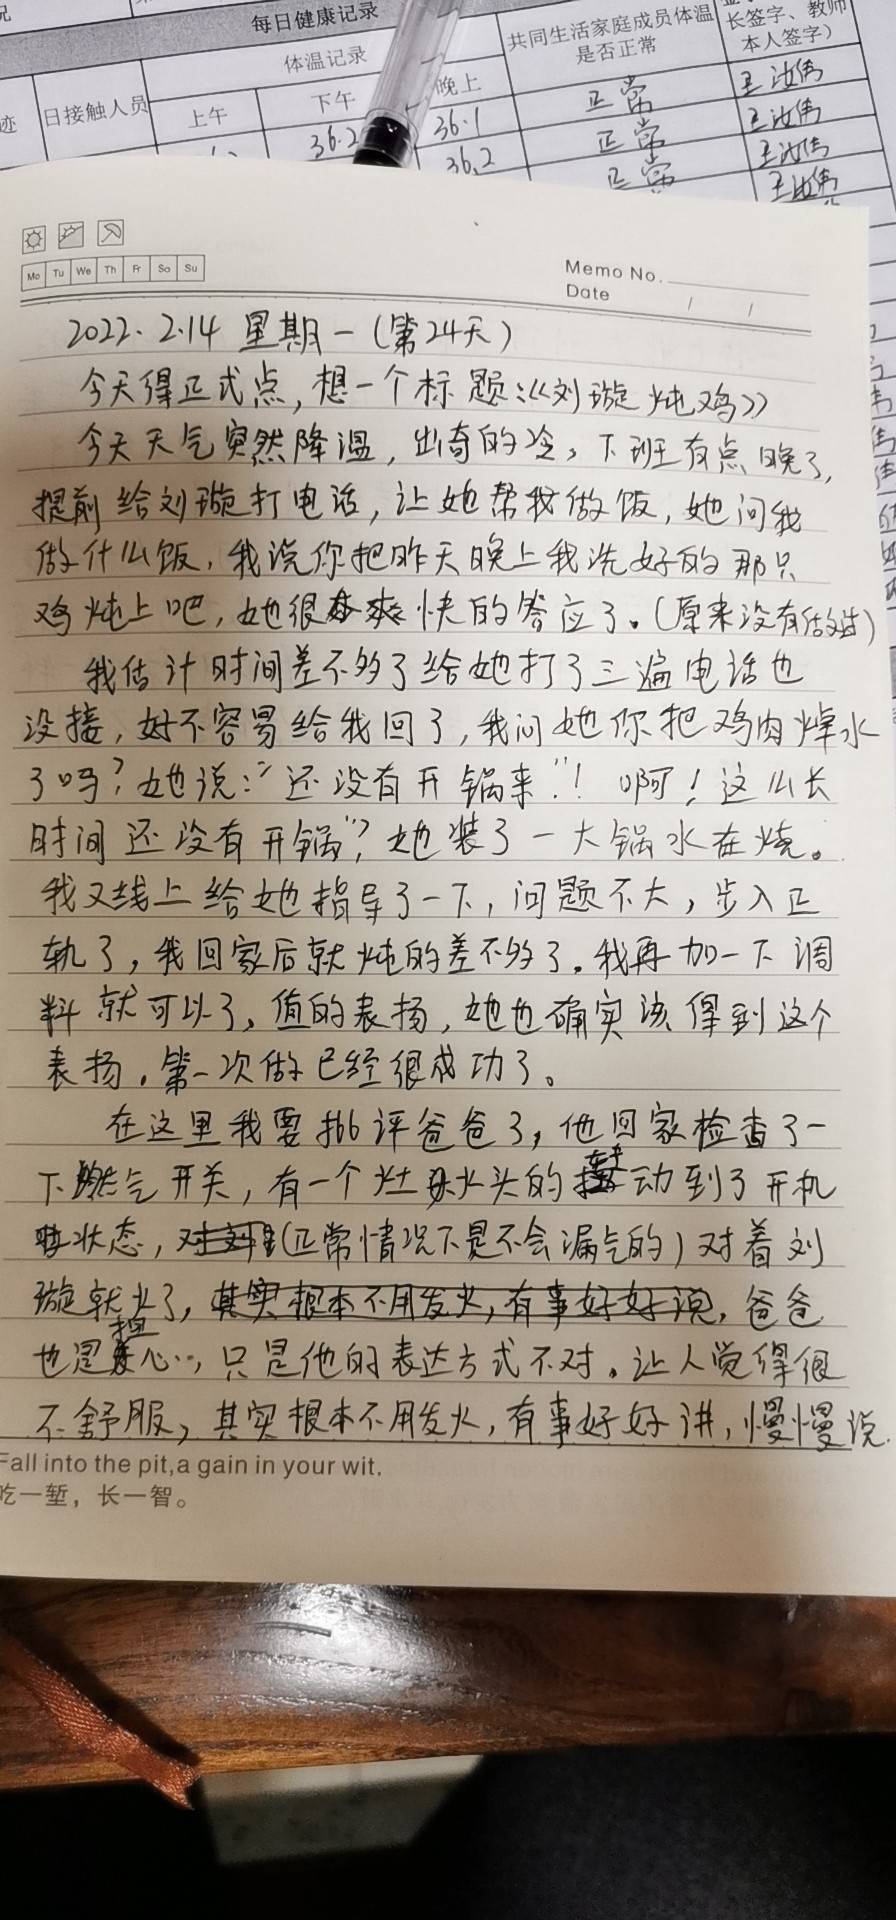 况
每日健康记录
体温记录
共同生活家庭成员体温
是否正常
长签字、教师
本人签字）
迹
日接触人员
上午
下午
晚上
36.2
36.1
正常
36.2
正常
正常
Mo Tu We Th Fr Sa Su
Memo No.
Date / /
2022.2.14 星期一（第24天）
今天得正式点，想一个标题：《刘璇炖鸡》
今天天气突然降温，出奇的冷，下班有点晚了，
提前给刘璇打电话，让她帮我做饭，她问我
做什么饭，我说你把昨天晚上我洗好的那只
鸡炖上吧，她很爽快的答应了。（原来没有做过）
我估计时间差不多了给她打了三遍电话也
没接，好不容易给我回了，我问她你把鸡肉焯水
了吗？她说：“还没有开锅来”！啊！这么长
时间还没有开锅”？她装了一大锅水在烧。
我又线上给她指导了一下，问题不大，步入正
轨了，我回家后就炖的差不多了。我再加一下调
料就可以了，值的表扬，她也确实该得到这个
表扬，第一次做已经很成功了。
在这里我要批评爸爸了，他回家检查了一
下燃气开关，有一个灶火头的转动到了开机
状态，（正常情况下是不会漏气的）对着刘
璇就火了，其实根本不用发火，有事好好说，爸爸
也是担心…，只是他的表达方式不对。让人觉得很
不舒服，其实根本不用发火，有事好好讲，慢慢说
Fall into the pit,a gain in your wit.
吃一堑，长一智。